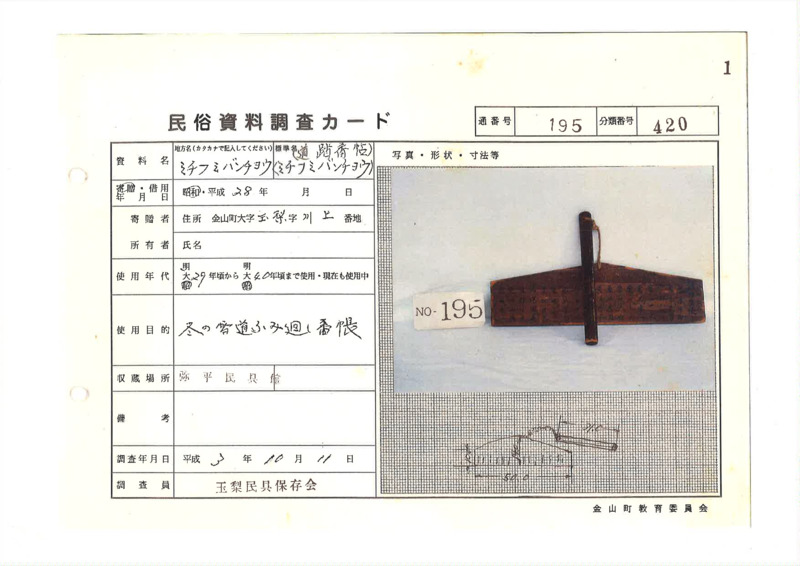 1
民俗資料調査カード
通番号 195 分類番号 420
資料名 地方名(カタカナで記入してください) ミチフミバンチョウ 標準名 (道踏番帖) (ミチフミバンチョウ)
寄贈・借用年月日 昭和・平成 28年 月 日
寄贈者 住所 金山町大字玉梨字川上 番地
所有者 氏名
使用年代 明 大 昭 29年頃から 明 大 昭 40年頃まで使用・現在も使用中
使用目的 冬の雪道ふみ廻し番帳
収蔵場所 弥平民具館
備考
調査年月日 平成 3年 10月 11日
調査員 玉梨民具保存会
写真・形状・寸法等
NO-195
31.0
50.0
金山町教育委員会